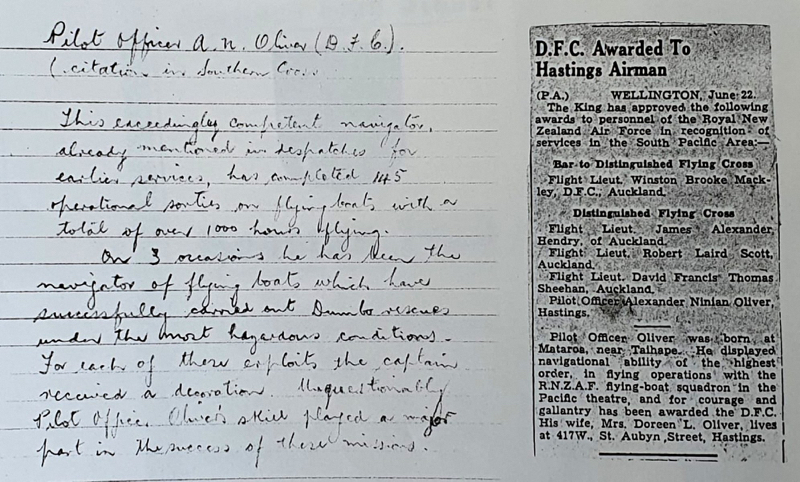 Pilot Officer A. N. Oliver (D.F.C.).
(citation in Southern Cross
This exceedingly competent navigator,
already mentioned in despatches for
earlier services, has completed 145
operational sorties on flying boats with a
total of over 1000 hours flying.
On 3 occasions he has been the
navigator of flying boats which have
successfully carried out Dumbo rescues
under the most hazardous conditions.
For each of these exploits the captain
received a decoration. Unquestionably
Pilot Officer Oliver's skill played a major
part in the success of these missions.
D.F.C. Awarded To
Hastings Airman
(P.A.) WELLINGTON, June 22.
The King has approved the following
awards to personnel of the Royal New
Zealand Air Force in recognition of
services in the South Pacific Area:—
Bar to Distinguished Flying Cross
Flight Lieut. Winston Brooke Mack-
ley, D.F.C., Auckland.
Distinguished Flying Cross
Flight Lieut. James Alexander
Hendry, of Auckland.
Flight Lieut. Robert Laird Scott,
Auckland.
Flight Lieut. David Francis Thomas
Sheehan, Auckland.
Pilot Officer Alexander Ninian Oliver,
Hastings.
Pilot Officer Oliver was born at
Mataroa, near Taihape. He displayed
navigational ability of the highest
order, in flying operations with the
R.N.Z.A.F. flying-boat squadron in the
Pacific theatre, and for courage and
gallantry has been awarded the D.F.C.
His wife, Mrs. Doreen L. Oliver, lives
at 417W., St. Aubyn Street, Hastings.